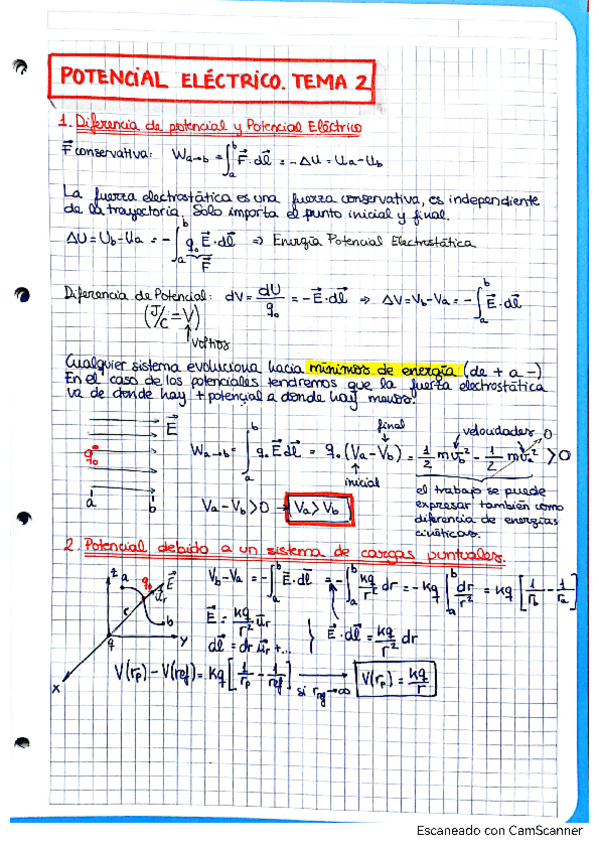 POTENCIAL ELÉCTRICO. TEMA 2
1. Diferencia de potencial y Potencial Eléctrico
F⃗ conservativa: Wa→b = ∫ₐᵇ F⃗·dl⃗ = -ΔU = Ua - Ub
La fuerza electrostática es una fuerza conservativa, es independiente
de la trayectoria. Solo importa el punto inicial y final.
ΔU = Ub - Ua = -∫ₐᵇ q₀ E⃗·dl⃗ ⇒ Energía Potencial Electrostática
F⃗
Diferencia de Potencial: dV = dU/q₀ = -E⃗·dl⃗ ⇒ ΔV = Vb - Va = -∫ₐᵇ E⃗·dl⃗
(J/C = V)
voltios
Cualquier sistema evoluciona hacia mínimos de energía (de + a -)
En el caso de los potenciales tendremos que la fuerza electrostática
va de donde hay + potencial a donde hay menos.
E⃗
q₀
a b
final
velocidades 0
Wa→b = ∫ₐᵇ q₀ E⃗dl⃗ = q₀ (Va - Vb) = 1/2 mv²b - 1/2 mv²a > 0
inicial
Va - Vb > 0 → Va > Vb
el trabajo se puede
expresar también como
diferencia de energías
cinéticas.
2. Potencial debido a un sistema de cargas puntuales.
z a q₀ E⃗
u⃗r
c b
q y
x
Vb - Va = -∫ₐᵇ E⃗·dl⃗ = -∫ₐᵇ kq/r² dr = -kq ∫ₐᵇ dr/r² = kq [1/rb - 1/ra]
E⃗ = kq/r² u⃗r
dl⃗ = dr u⃗r + ...
} E⃗·dl⃗ = kq/r² dr
V(rp) - V(ref) = kq [1/rp - 1/ref] → si rref→∞ V(rp) = kq/r
Escaneado con CamScanner